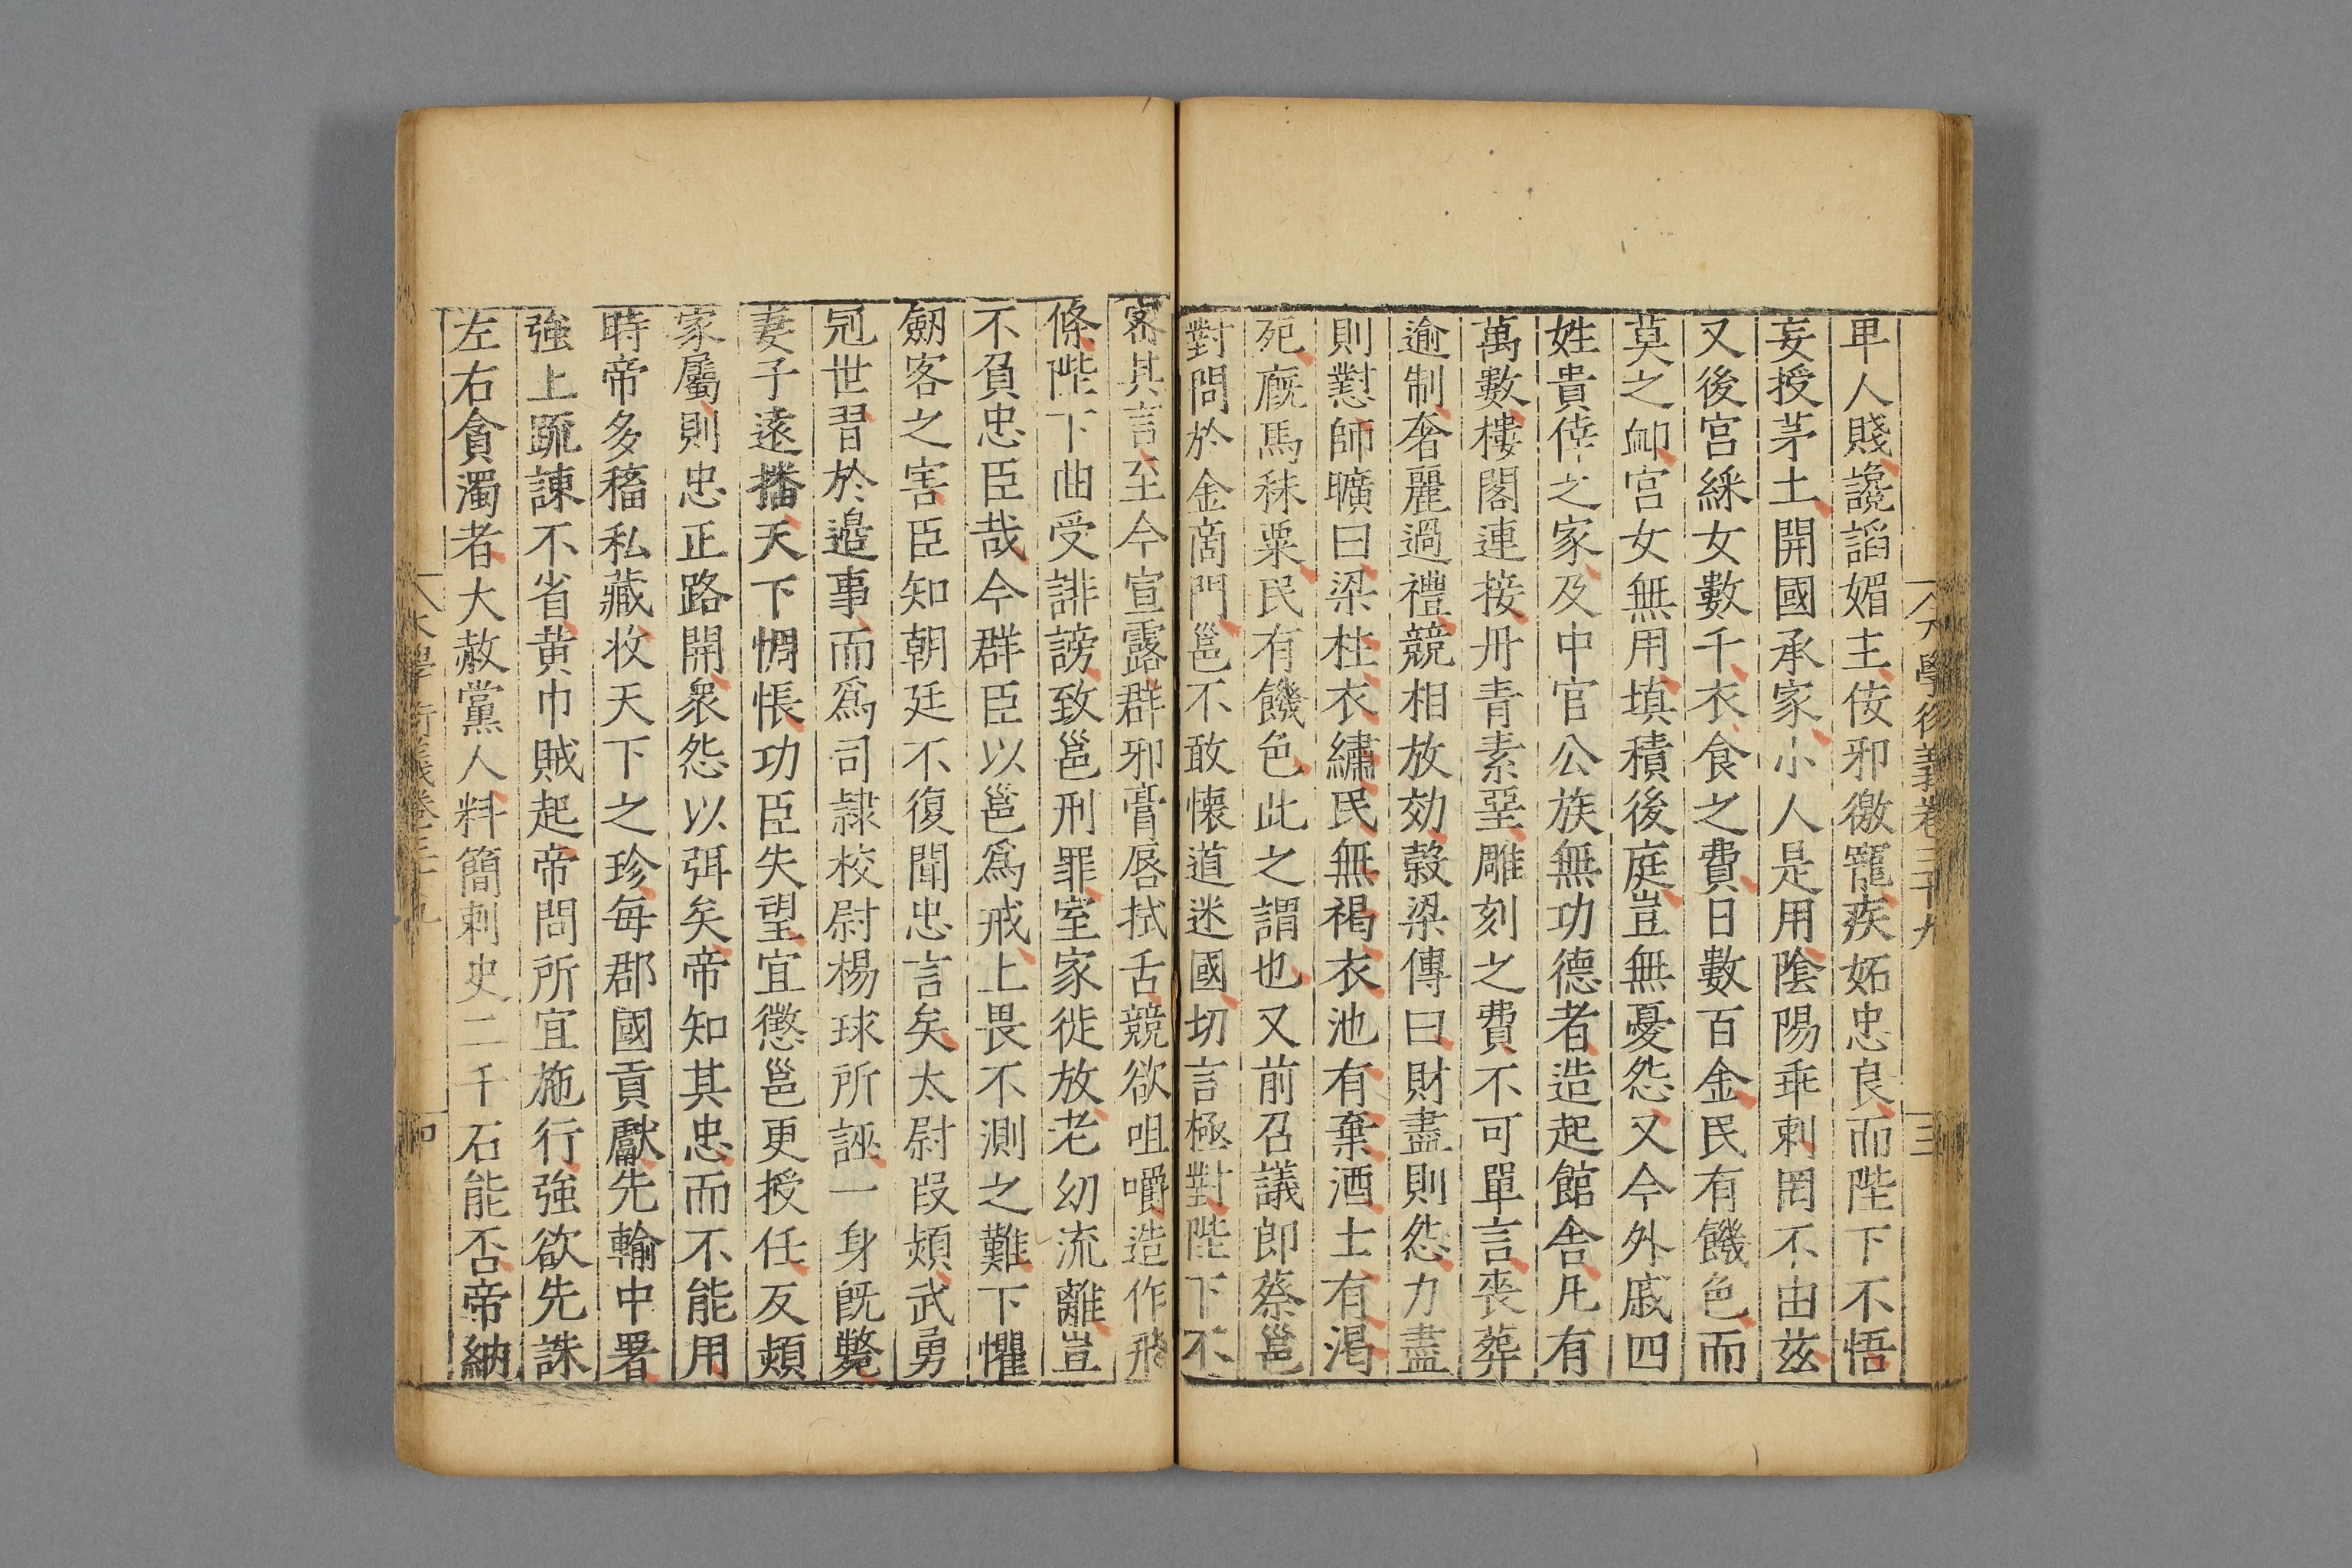 大學衍義卷三十九
三
𤰞人賤讒謟媚主佞邪徼寵疾妬忠良而陛下不悟
妄授茅土開國承家小人是用隂陽乖刺罔不由茲
又後宮綵女數千衣食之費日數百金民有饑色而
莫之䘏宮女無用填積後庭豈無憂怨又今外戚四
姓貴倖之家及中官公族無功德者造起館舎凡有
萬數樓閣連接丹青素堊雕刻之費不可單言喪葬
逾制奢麗過禮競相放効糓梁傳曰財盡則怨力盡
則懟師曠曰梁柱衣繡民無褐衣池有棄酒士有渇
死廐馬秣粟民有饑色此之謂也又前召議郎蔡邕
對問於金啇門邕不敢懐道迷國切言極對陛下不
宻其言至今宣露群邪膏唇拭舌競欲咀嚼造作飛
條陛下曲受誹謗致邕刑罪室家徙放老幼流離豈
不負忠臣哉今群臣以邕爲戒上畏不測之難下懼
劒客之害臣知朝廷不復聞忠言矣太尉段熲武勇
冠世習於邉事而爲司隷校尉楊球所誣一身旣斃
妻子逺播天下惆悵功臣失望宜懲邕更授任反熲
家屬則忠正路開衆怨以弭矣帝知其忠而不能用
時帝多稸私藏收天下之珍每郡國貢獻先輸中署
強上䟽諫不省黄巾賊起帝問所宜施行強欲先誅
左右貪濁者大赦黨人料簡刺史二千石能否帝納
大學衍義卷三十九
四